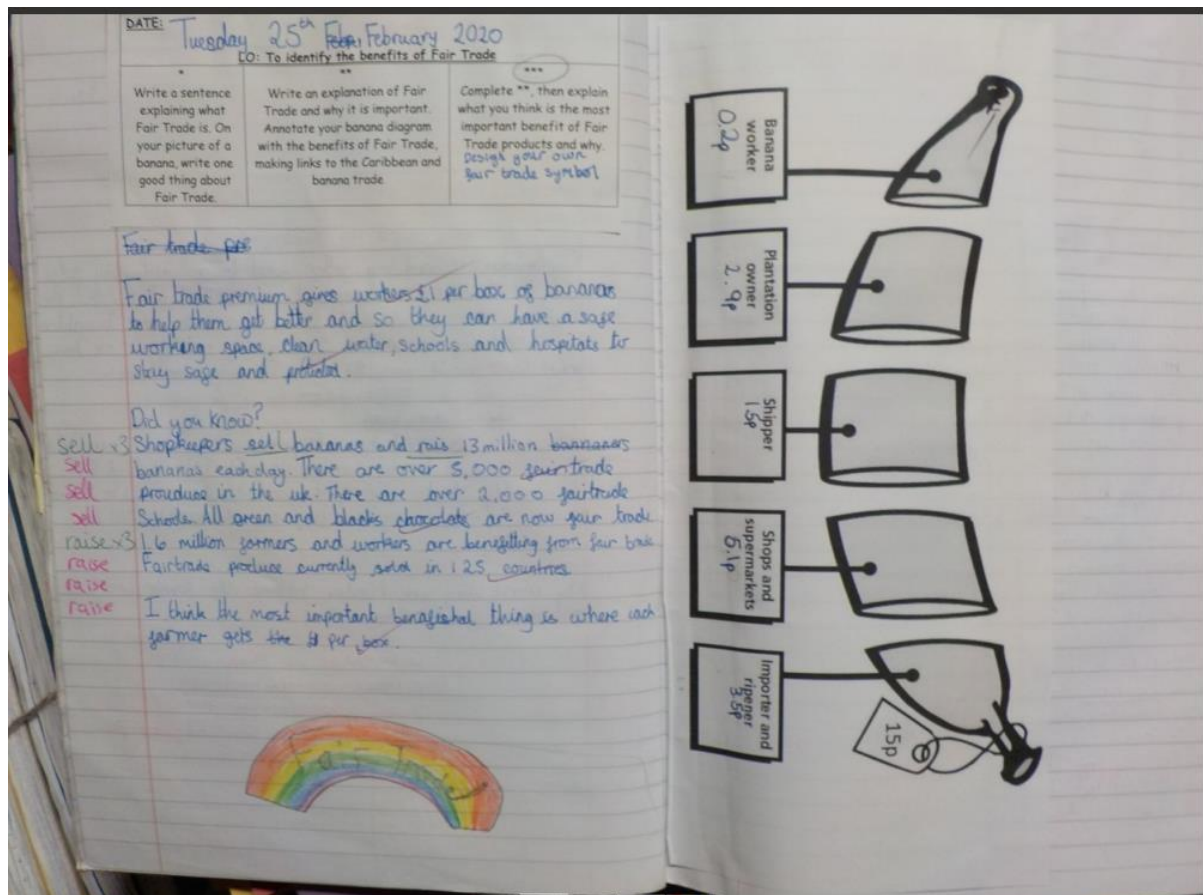 DATE: Tuesday 25th Febr, February 2020
LO: To identify the benefits of Fair Trade
*
Write a sentence
explaining what
Fair Trade is. On
your picture of a
banana, write one
good thing about
Fair Trade.
**
Write an explanation of Fair
Trade and why it is important.
Annotate your banana diagram
with the benefits of Fair Trade,
making links to the Caribbean and
banana trade.
***
Complete **, then explain
what you think is the most
important benefit of Fair
Trade products and why.
Design your own
fair trade symbol
Fair trade
Fair trade premium gives workers £1 per box of bananas
to help them get better and so they can have a safe
working space, clean water, schools and hospitals to
stay safe and protected.
Did you know?
sell x3 Shopkeepers sell bananas and rais 13 million bannaners
sell bananas each day. There are over 5,000 fair trade
sell prouduce in the uk. There are over 2,000 fairtrade
sell Schools. All green and blacks chocolate are now fair trade
raise x3 1.6 million farmers and workers are benefitting from fair trade
raise Fairtrade produce currently sold in 125 countries
raise
raise I think the most important benafishal thing is where each
farmer gets the £1 per box.
Fair Trade!
Banana
worker
0.2p
Plantation
owner
2.9p
Shipper
1.5p
Shops and
supermarkets
5.1p
Importer and
ripener
3.5p
15p